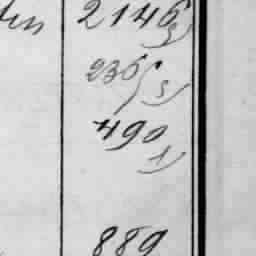 2146
3)
236
5)
490
1)
889